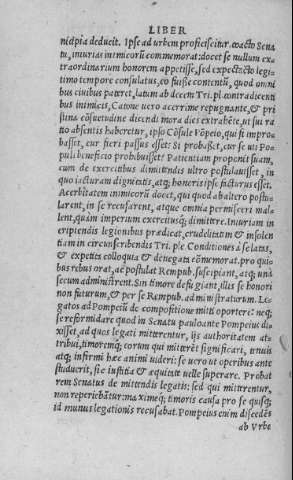 LIBER
nicipia deducit. Ipse ad urbem proficiscitur. coacto Sena
tu, iniurias inimicorũ commemorat: docet se nullum ex
traordinarium honorem appetisse, sed expectacto legi
timo tempore consulatus, eo fuisse contentũ, quod omni
bus ciuibus pateret, latum ab decem Tri. pl. contradicenti
bus inimicis, Catone uero acerrime repugnante, & pri
stina cõsuetudine dicendi mora dies extrahẽte, ut sui ra
tio absentis haberetur, ipso Cõsule Põpeio, qui si impro
basset, cur fieri passus esset? Si probaßet, cur se uti Po=
puli beneficio prohibuisset? Patientiam proponit suam,
cum de exercitibus dimittendis ultro postulauisset, in
quo iacturam dignitatis, atq; honoris ipse facturus esset.
Acerbitatem inimicorũ docet, qui quod ab altero postu=
larent, in se recusarent, atque omnia permisceri mal=
lent, quàm imperium exercitusq; dimittere. Iniuriam in
eripiendis legionibus prædicat, crudelitatem & insolen
tiam in circunscribendis Tri. pl. Conditiones à se latas,
& expetita colloquia & denegata cõmemorat. pro qui=
bus rebus orat, ac postulat Rempub. suscipiant, atq; unà
secum administrent. Sin timore defugiant, illis se honori
non futurum, & per se Rempub. administraturum. Le=
gatos ad Pompeiũ de compositione mitti oportere: neq;
se reformidare quod in Senatu paulo ante Pompeius di=
xisset, ad quos legati mitterentur, ijs authoritatem at=
tribui, timoremq; eorum qui mitterẽt significari, tenuis
atq; infirmi hæc animi uideri: se uero ut operibus ante
studuerit, sic iustitia & æquitate uelle superare. Probat
rem Senatus de mittendis legatis: sed qui mitterentur,
non reperiebãtur: maximeq; timoris causa pro se quisq;
id munus legationis recusabat. Pompeius enim discedẽs
ab Vrbe